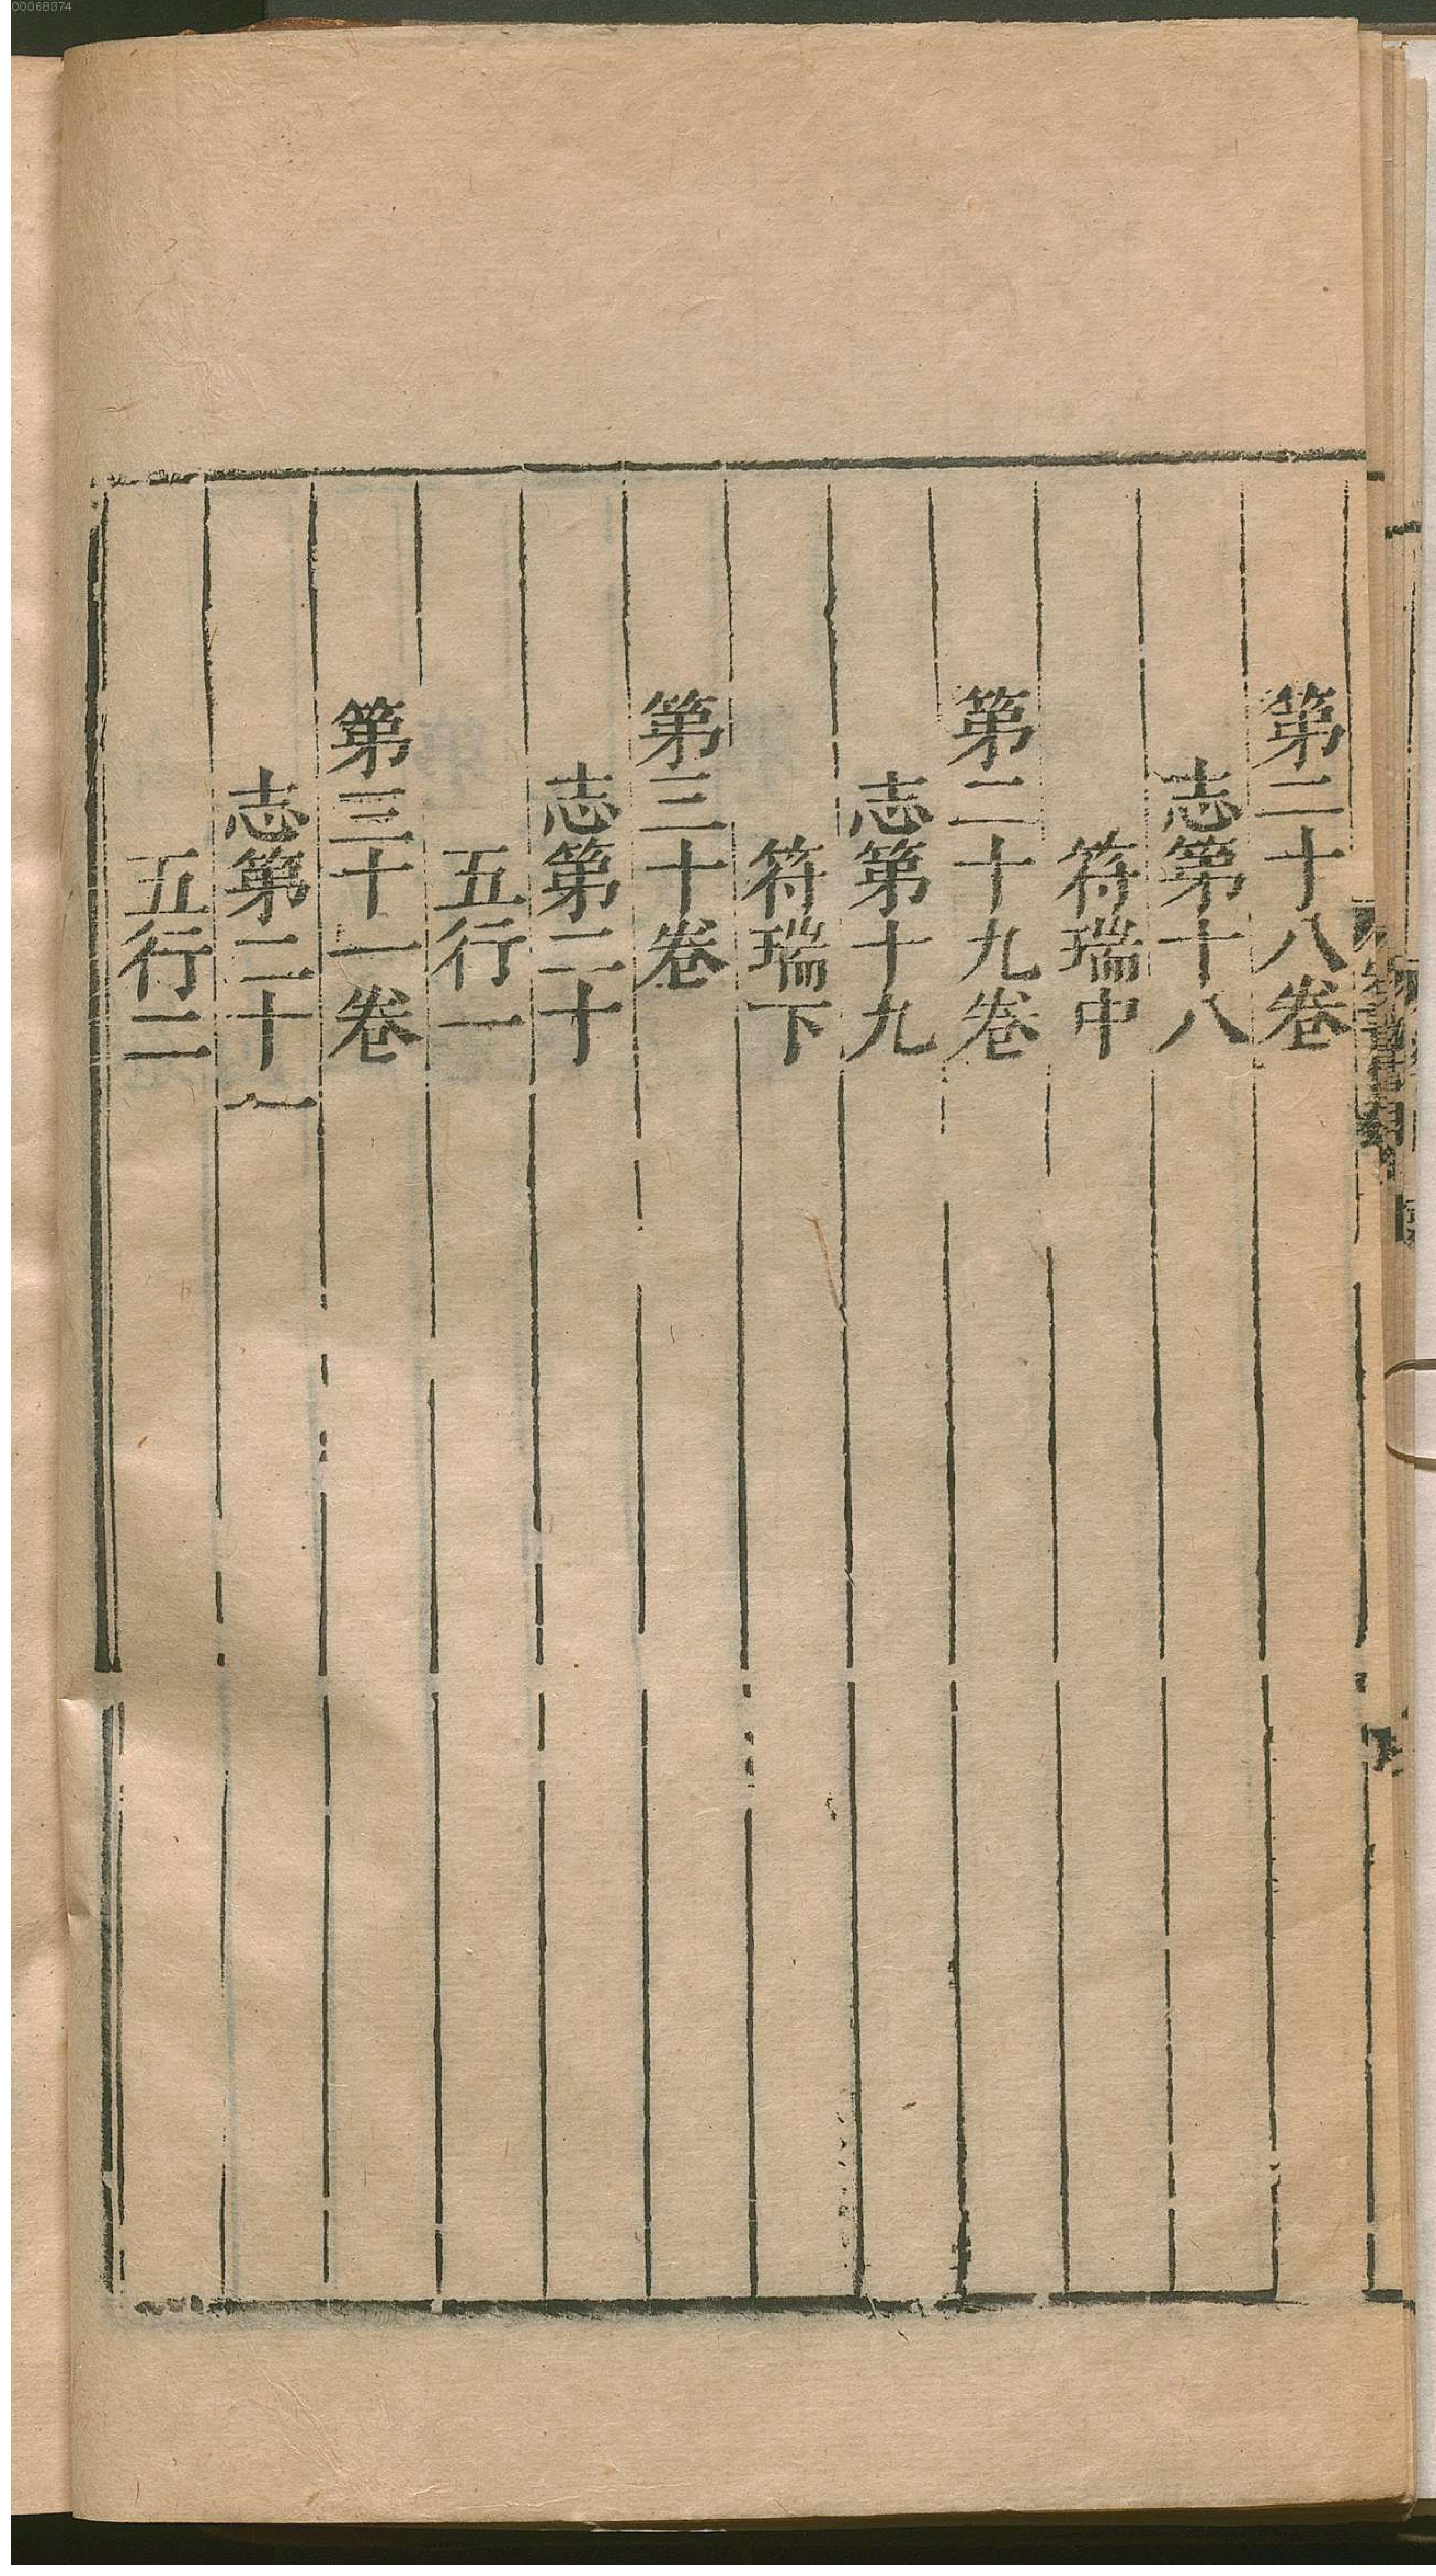 00068374
第二十八卷
志第十八
符瑞中
第二十九卷
志第十九
符瑞下
第三十卷
志第二十
五行一
第三十一卷
志第二十一
五行二